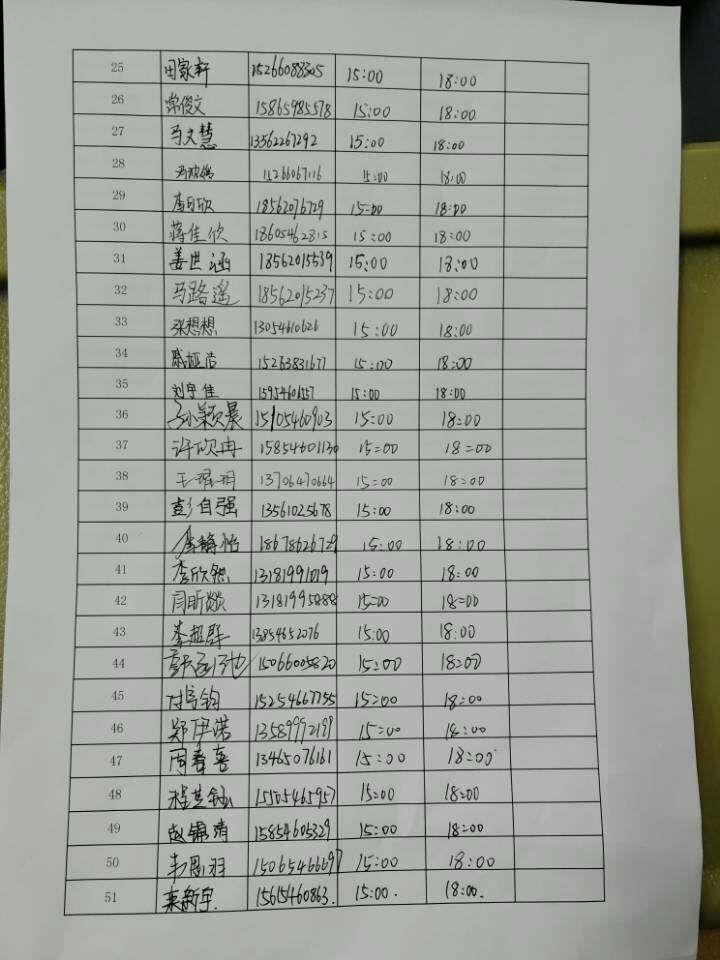 25 田家轩 15266088305 15:00 18:00
26 常俊文 15865985578 15:00 18:00
27 马文慧 13562267292 15:00 18:00
28 15266067116 15:00 18:00
29 李可欣 18562076729 15:00 18:00
30 蒋佳欣 18605462815 15:00 18:00
31 姜世涵 18562015539 15:00 18:00
32 马路遥 18562015237 15:00 18:00
33 张想想 13054610626 15:00 18:00
34 15263831677 15:00 18:00
35 刘宇佳 15954606557 15:00 18:00
36 孙颖晨 15905460903 15:00 18:00
37 许欣冉 15854601130 15:00 18:00
38 13706470664 15:00 18:00
39 彭自强 13561025678 15:00 18:00
40 李静怡 18678626729 15:00 18:00
41 李欣然 13181991019 15:00 18:00
42 闫昕燚 13181995888 15:00 18:00
43 李超群 13854652076 15:00 18:00
44 15066005820 15:00 18:00
45 15254667755 15:00 18:00
46 郑伊诺 13589992199 15:00 18:00
47 周春喜 13465076161 15:00 18:00
48 15505465957 15:00 18:00
49 赵锦清 15854605329 15:00 18:00
50 韦恩羽 15065466697 15:00 18:00
51 栾新宇. 15615460863. 15:00. 18:00.